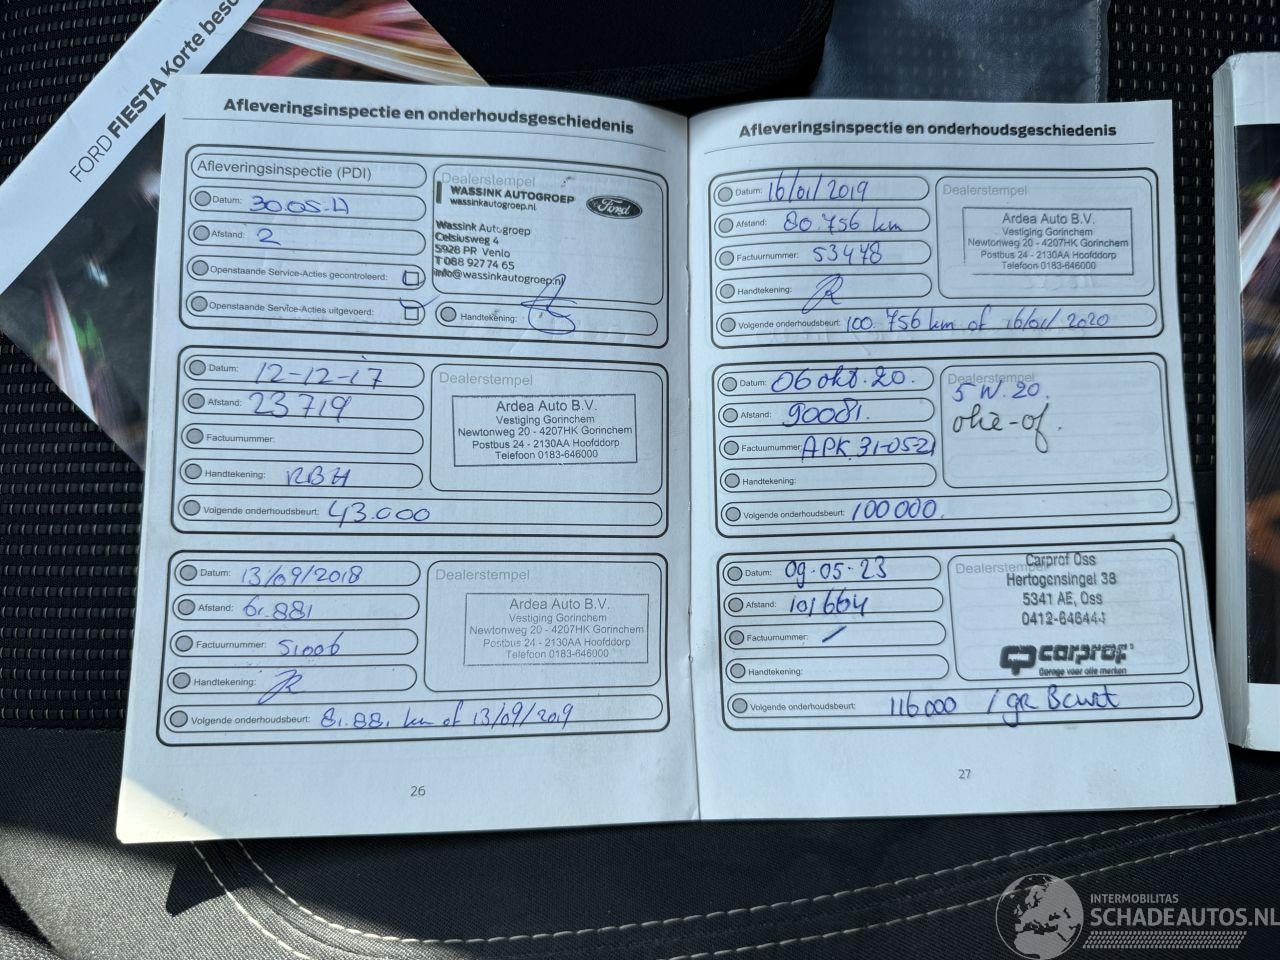 FORD FIESTA Korte besc
Afleveringsinspectie en onderhoudsgeschiedenis
Afleveringsinspectie (PDI)
Datum: 30.05.17
Afstand: 2
Openstaande Service-Acties gecontroleerd:
Openstaande Service-Acties uitgevoerd:
Dealerstempel
WASSINK AUTOGROEP
wassinkautogroep.nl
Ford
Wassink Autogroep
Celsiusweg 4
5928 PR Venlo
T 088 927 74 65
info@wassinkautogroep.nl
Handtekening:
Datum: 12-12-17
Afstand: 23719
Factuurnummer:
Handtekening: RBH
Volgende onderhoudsbeurt: 43.000
Dealerstempel
Ardea Auto B.V.
Vestiging Gorinchem
Newtonweg 20 - 4207HK Gorinchem
Postbus 24 - 2130AA Hoofddorp
Telefoon 0183-646000
Datum: 13/09/2018
Afstand: 61.881
Factuurnummer: 51006
Handtekening:
Volgende onderhoudsbeurt: 81.881 km of 13/09/2019
Dealerstempel
Ardea Auto B.V.
Vestiging Gorinchem
Newtonweg 20 - 4207HK Gorinchem
Postbus 24 - 2130AA Hoofddorp
Telefoon 0183-646000
26
Afleveringsinspectie en onderhoudsgeschiedenis
Datum: 16/01/2019
Afstand: 80.756 km
Factuurnummer: 53478
Handtekening:
Volgende onderhoudsbeurt: 100.756 km of 16/01/2020
Dealerstempel
Ardea Auto B.V.
Vestiging Gorinchem
Newtonweg 20 - 4207HK Gorinchem
Postbus 24 - 2130AA Hoofddorp
Telefoon 0183-646000
Datum: 06 okt. 20.
Afstand: 90081.
Factuurnummer: APK 31-05-21
Handtekening:
Volgende onderhoudsbeurt: 100000.
Dealerstempel
5 W. 20.
olie-of.
Datum: 09-05-23
Afstand: 101664
Factuurnummer: /
Handtekening:
Volgende onderhoudsbeurt: 116000 / gr Beurt
Dealerstempel
Carprof Oss
Hertogensingel 38
5341 AE, Oss
0412-646444
carprof
Garage voor alle merken
27
INTERMOBILITAS
SCHADEAUTOS.NL